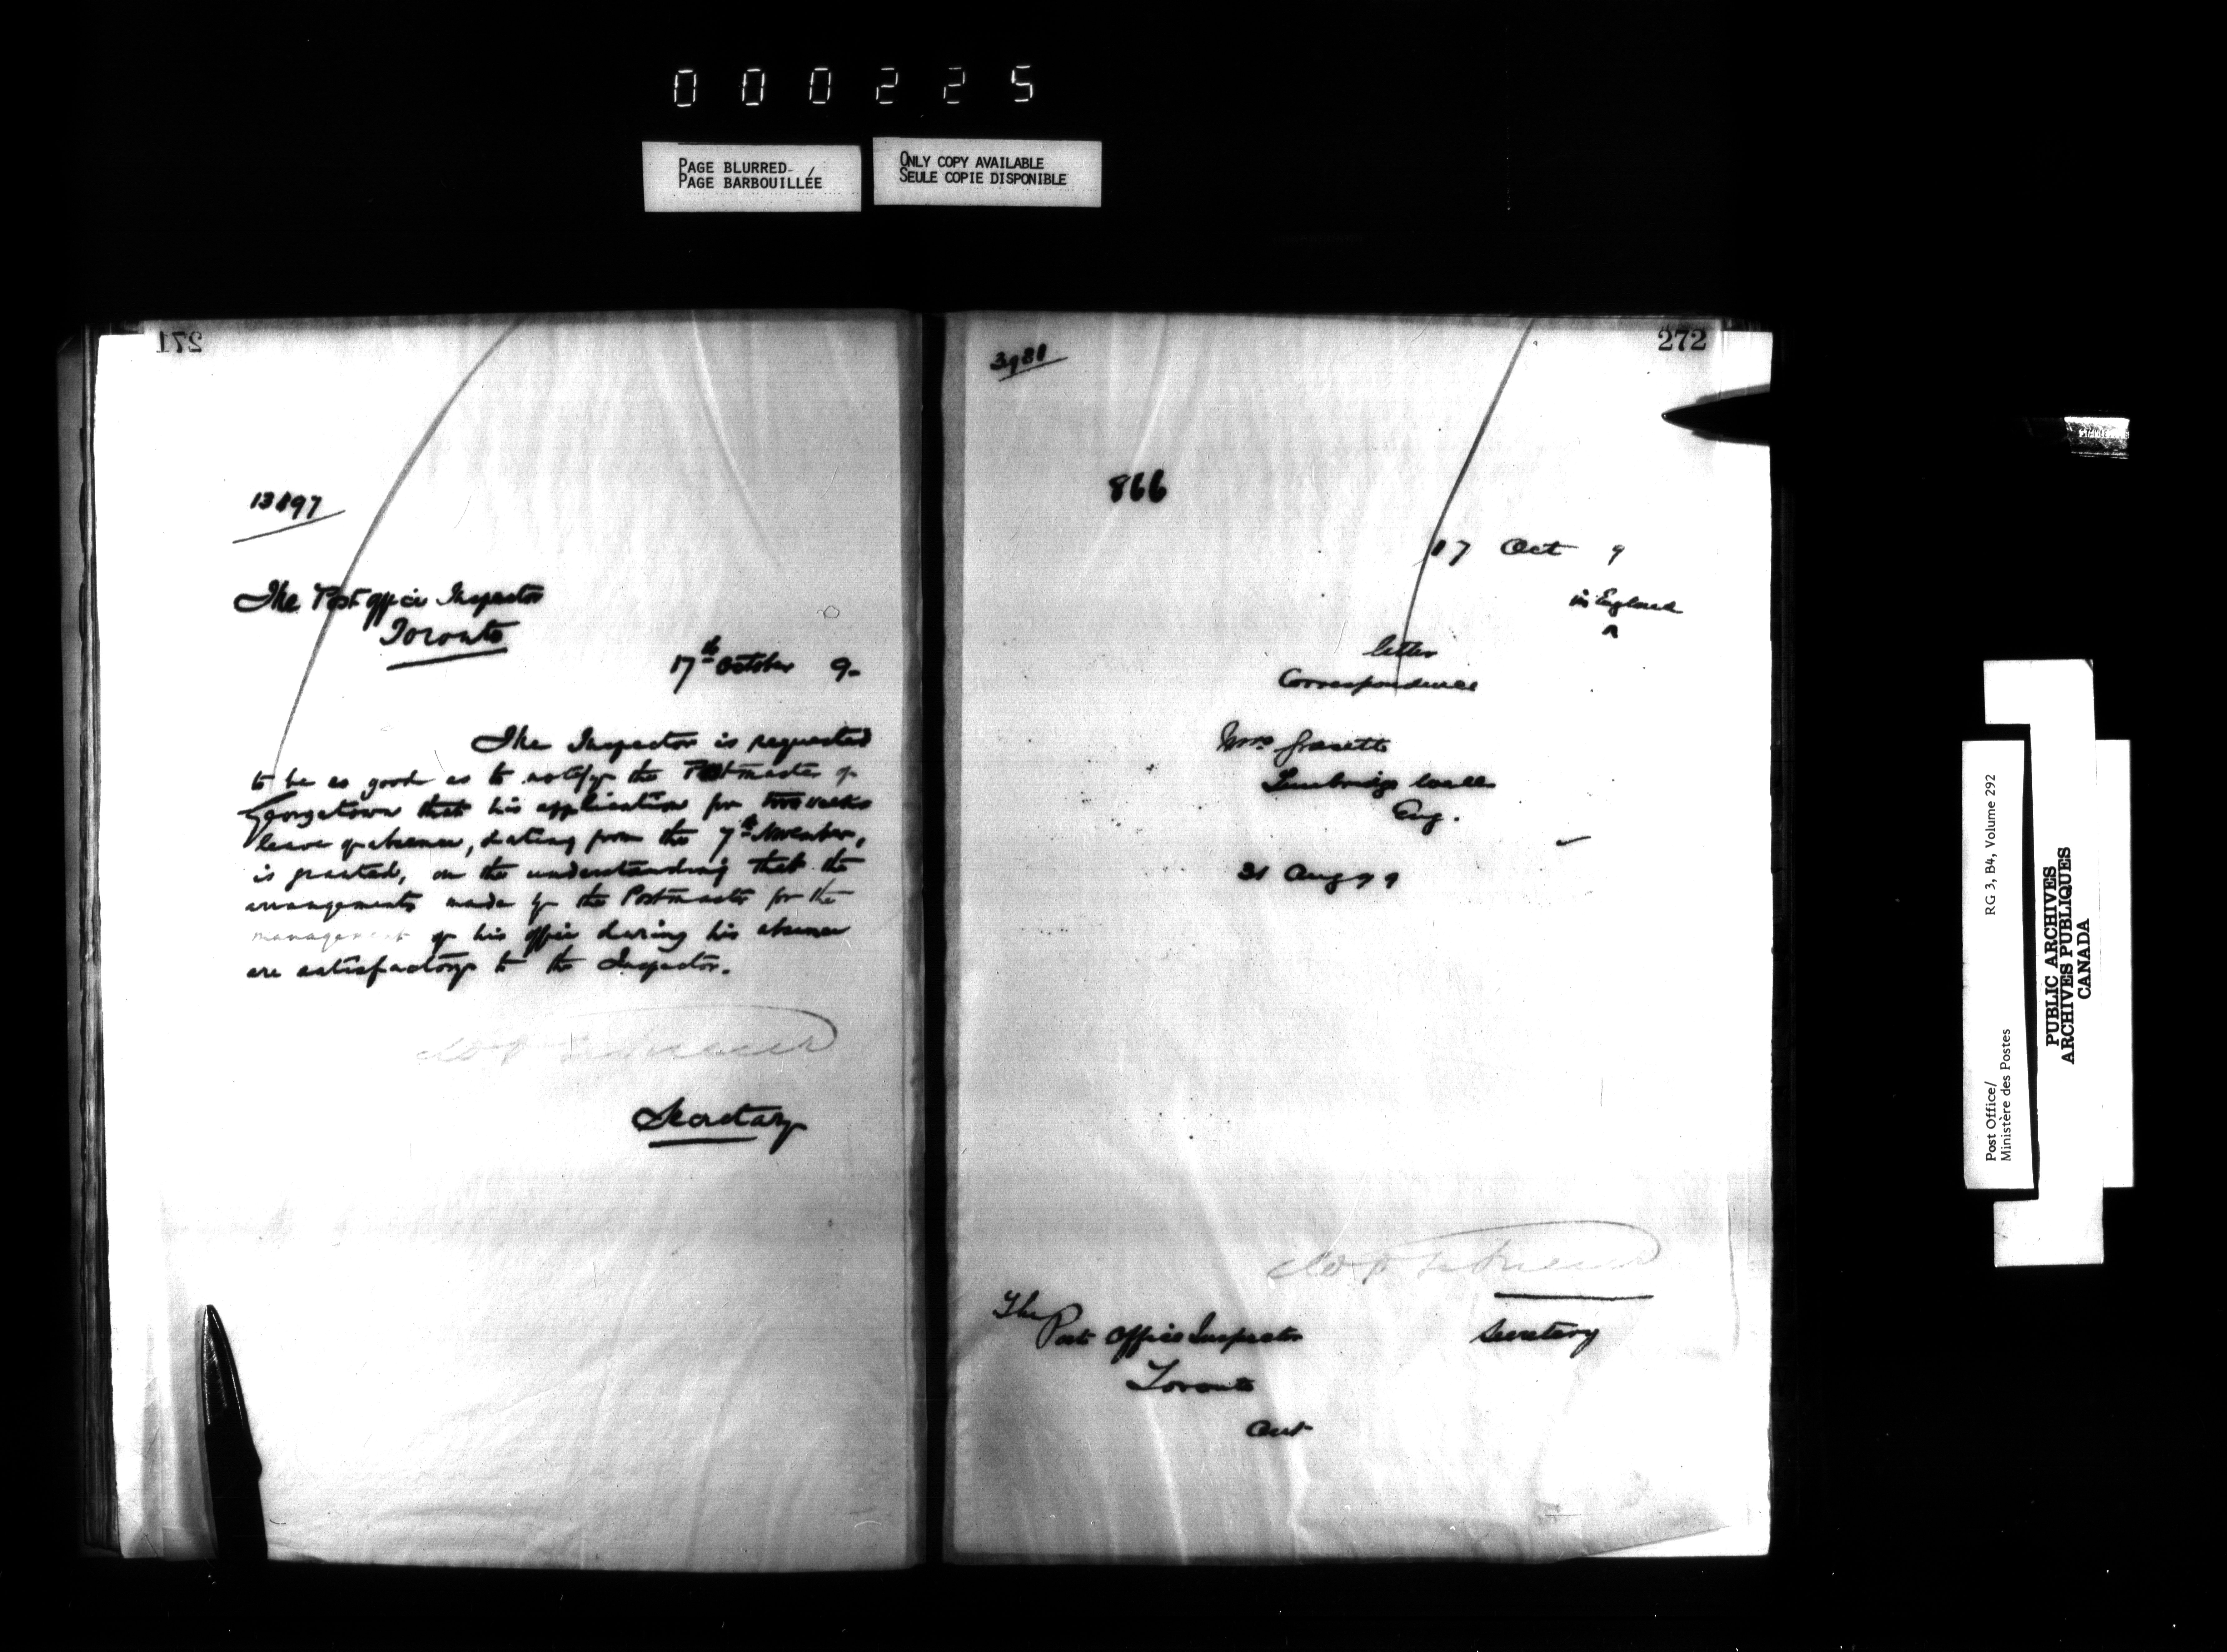 000225
PAGE BLURRED
PAGE BARBOUILLÉE
ONLY COPY AVAILABLE
SEULE COPIE DISPONIBLE
271
13897
The Post Office Inspector
Toronto
17th October 9-
The Inspector is requested
to be as good as to notify the Postmaster of
Georgetown that his application for two weeks
leave of absence, dating from the 7th November,
is granted, on the understanding that the
arrangements made by the Postmaster for the
management of his office during his absence
are satisfactory to the Inspector.
Secretary
272
3981
866
17 Oct 9
in England
^
letter
Correspondence
Mrs Grasett
Tunbridge Wells
Eng.
31 Aug 99
Secretary
The
Post Office Inspector
Toronto
Ont
Post Office/
Ministère des Postes
RG 3, B4, Volume 292
PUBLIC ARCHIVES
ARCHIVES PUBLIQUES
CANADA